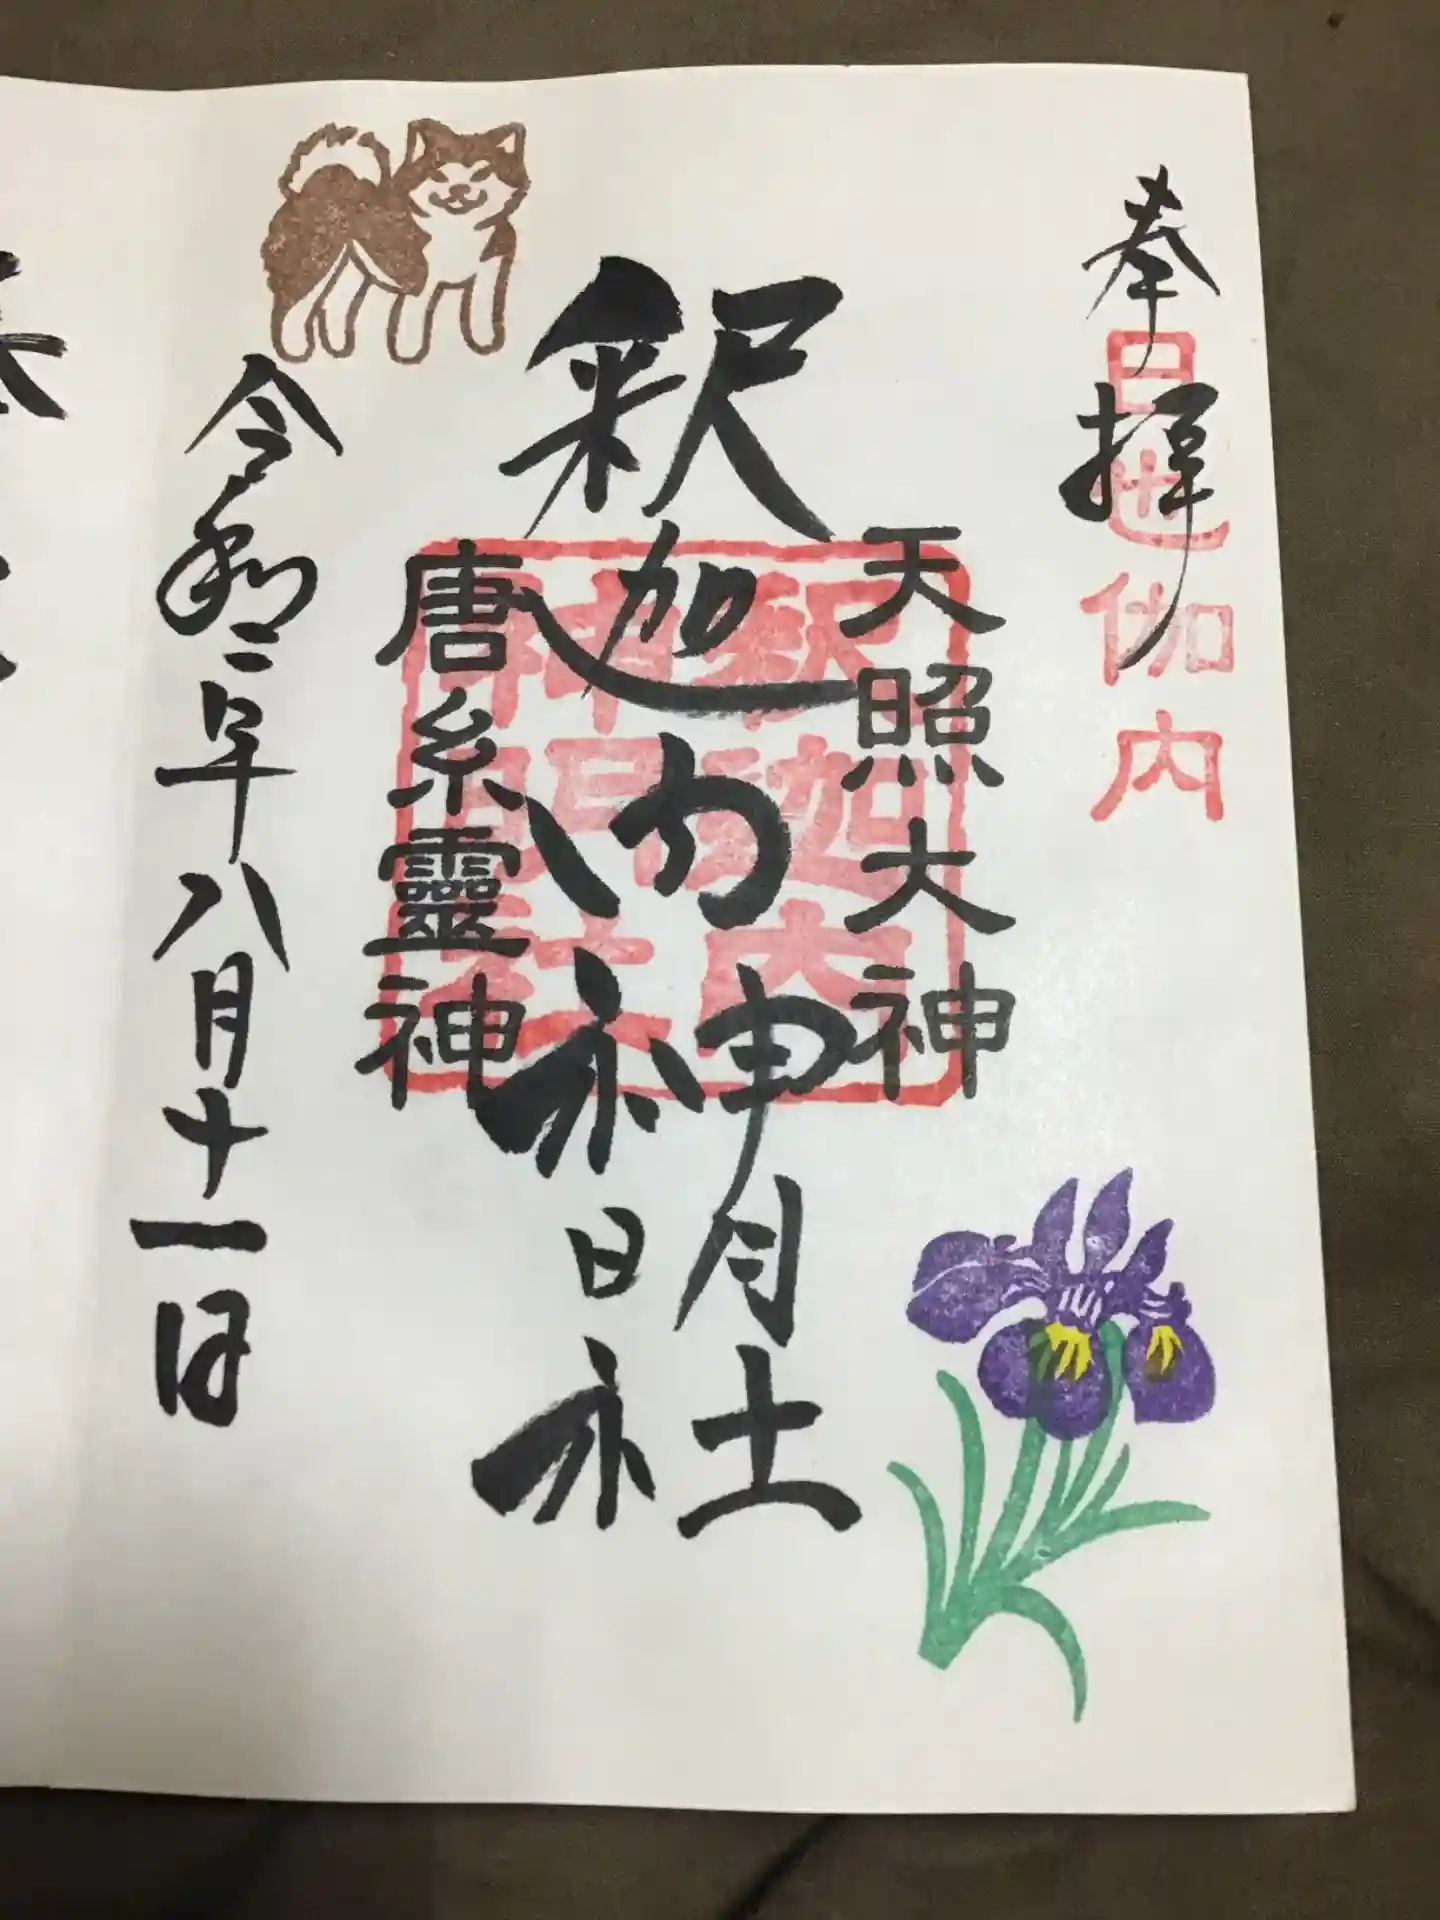 奉拝
日也伽内
天照大神
釈迦内神明社
釈迦内
神明社
唐糸靈神
令和二年八月十一日